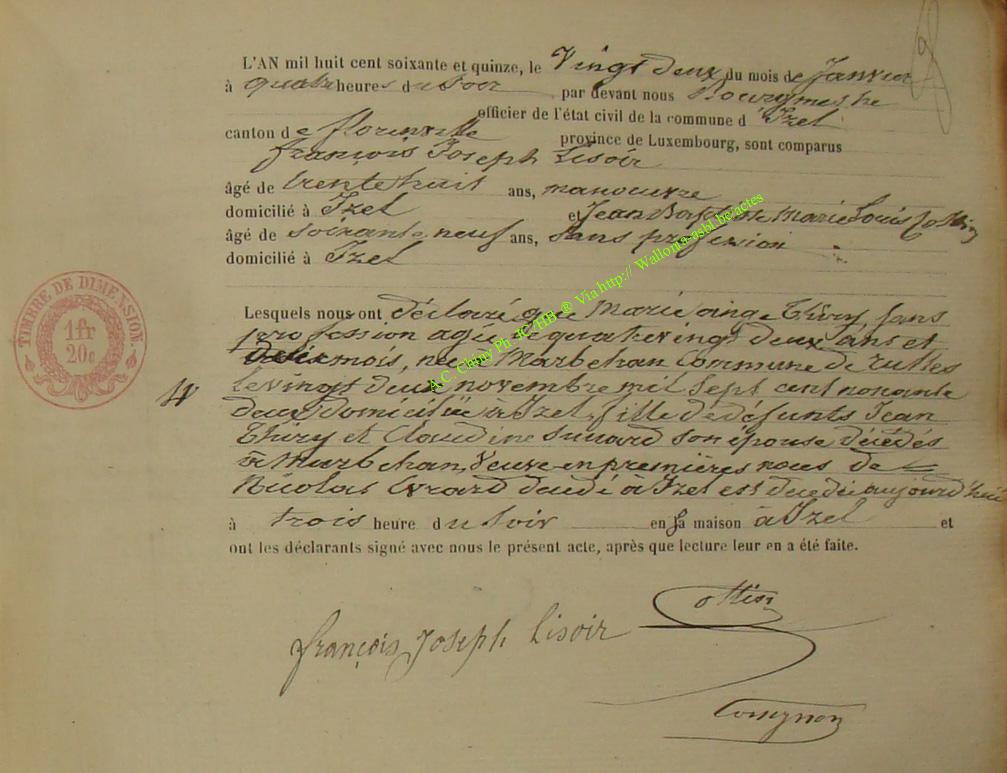 L'AN mil huit cent soixante et quinze, le Vingt deux du mois de Janvier
à quatre heures du Soir par devant nous Bourgmestre
officier de l'état civil de la commune d'Izel
canton de florenville province de Luxembourg, sont comparus
françois Joseph Lisoir
âgé de trente huit ans, manouvre
domicilié à Izel et Jean Baptiste Marie Louis Cottin
âgé de soixante neuf ans, sans profession
domicilié à Izel
Lesquels nous ont déclaré que Marie ange Thiry, sans
profession agée de quatre vingt deux ans et
deux mois, née à Marbehan Commune de rulles
le vingt deux novembre mil sept cent nonante
deux domiciliée à Izel, fille de défunts Jean
Thiry et Claudine son épouse décédés
à Marbehan, Veuve en premières noces de
Nicolas Evrard décédé à Izel est décédée aujourd'hui
à trois heure du Soir en sa maison à Izel et
ont les déclarants signé avec nous le présent acte, après que lecture leur en a été faite.
françois Joseph Lisoir
Cottin
TIMBRE DE DIMENSION
1 fr
20 c
A.C. Chiny Ph JC/HB ® Via http:// Wallonia-asbl.be/actes